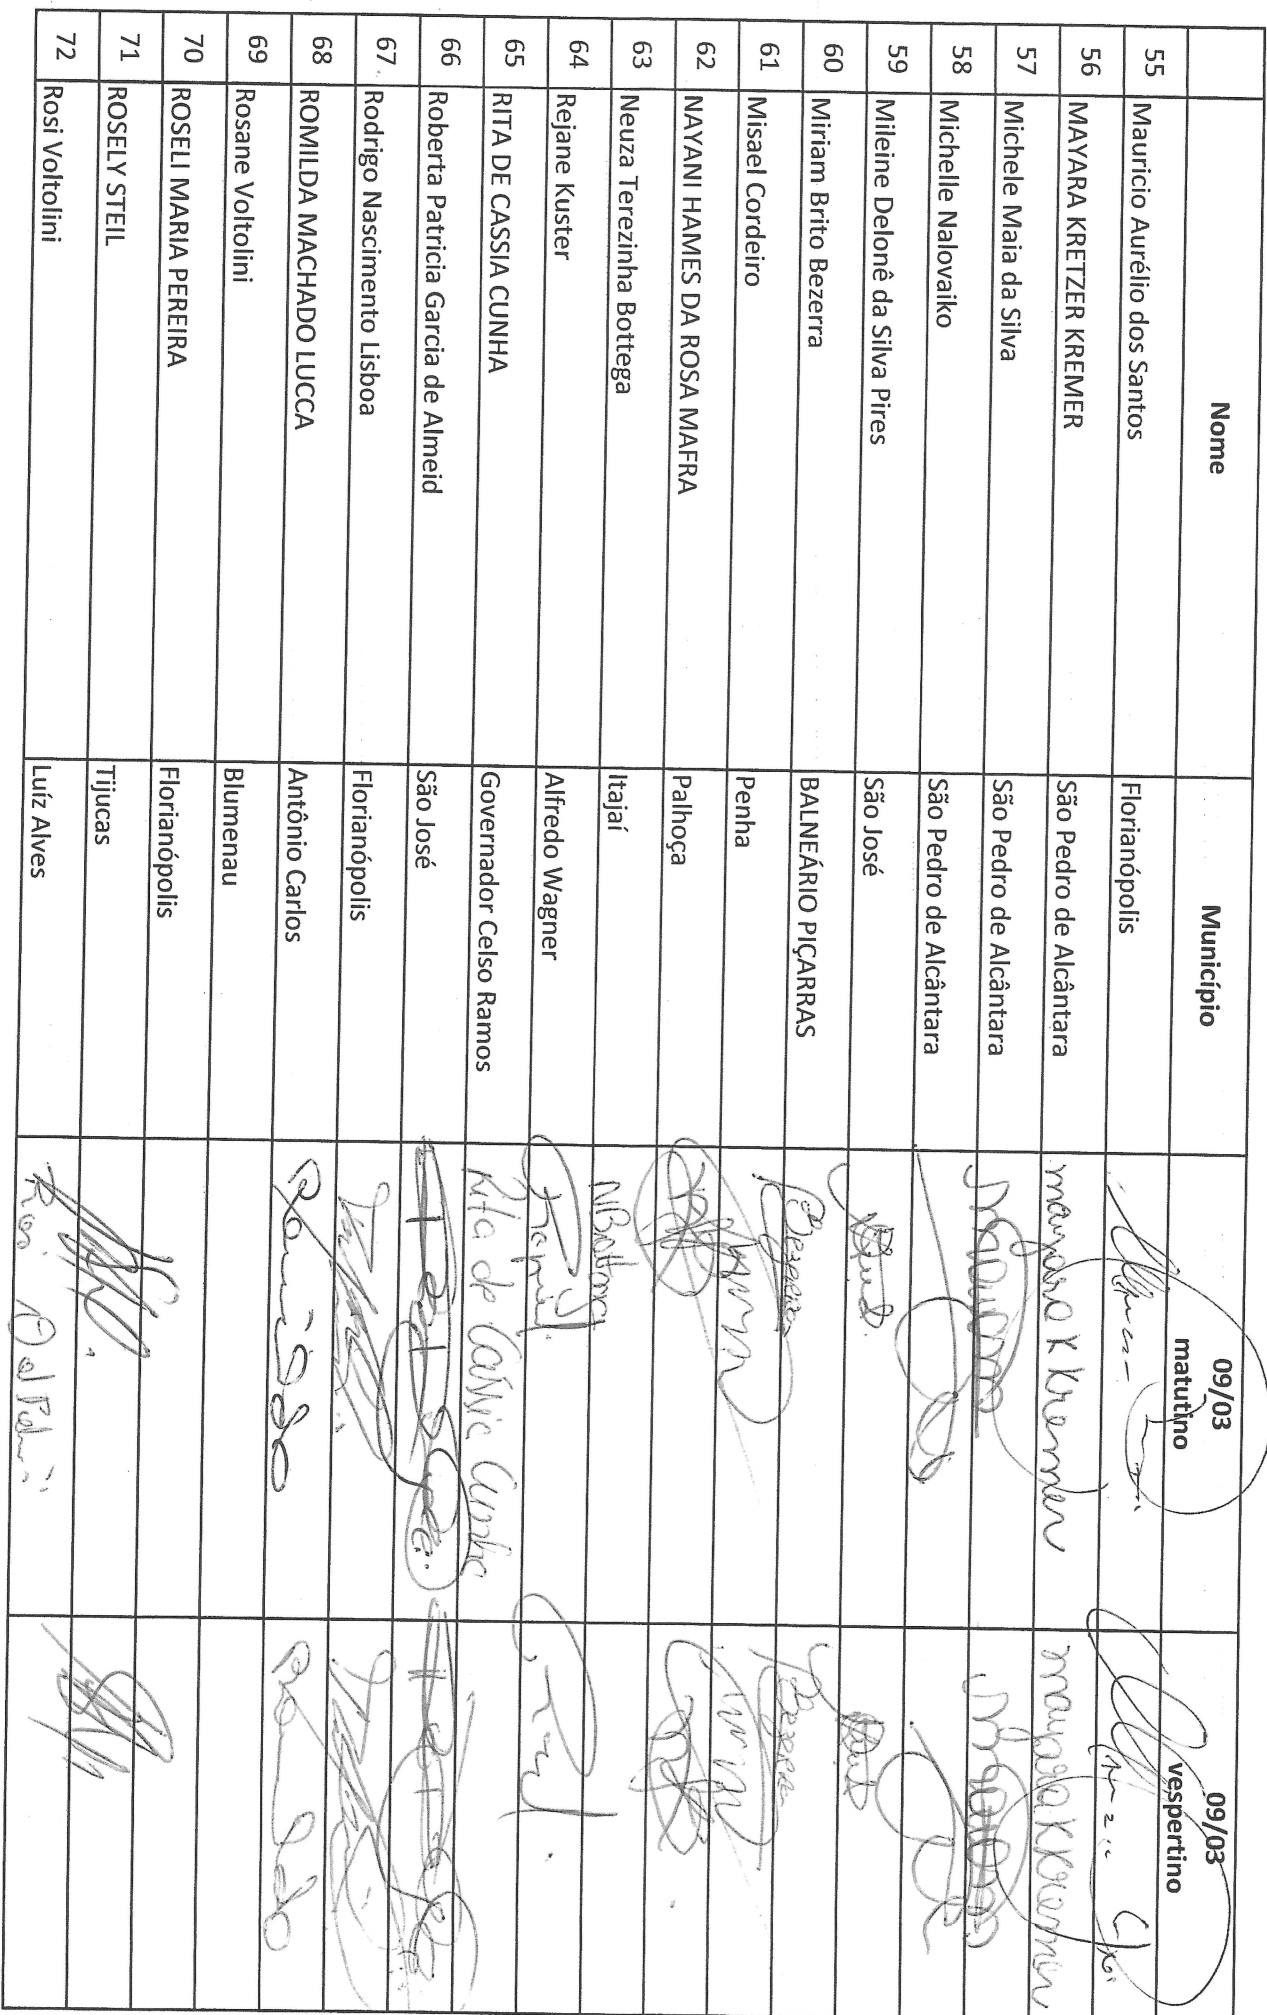 Nome Município 09/03 matutino 09/03 vespertino
55 Mauricio Aurélio dos Santos Florianópolis
56 MAYARA KRETZER KREMER São Pedro de Alcântara mayara K Kremer mayara K Kremer
57 Michele Maia da Silva São Pedro de Alcântara
58 Michelle Nalovaiko São Pedro de Alcântara
59 Mileine Delonê da Silva Pires São José
60 Miriam Brito Bezerra BALNEÁRIO PIÇARRAS Bezerra Bezerra
61 Misael Cordeiro Penha
62 NAYANI HAMES DA ROSA MAFRA Palhoça
63 Neuza Terezinha Bottega Itajaí NBottega
64 Rejane Kuster Alfredo Wagner
65 RITA DE CASSIA CUNHA Governador Celso Ramos Rita de Cassia Cunha
66 Roberta Patricia Garcia de Almeid São José
67 Rodrigo Nascimento Lisboa Florianópolis
68 ROMILDA MACHADO LUCCA Antônio Carlos
69 Rosane Voltolini Blumenau
70 ROSELI MARIA PEREIRA Florianópolis
71 ROSELY STEIL Tijucas
72 Rosi Voltolini Luíz Alves Rosi